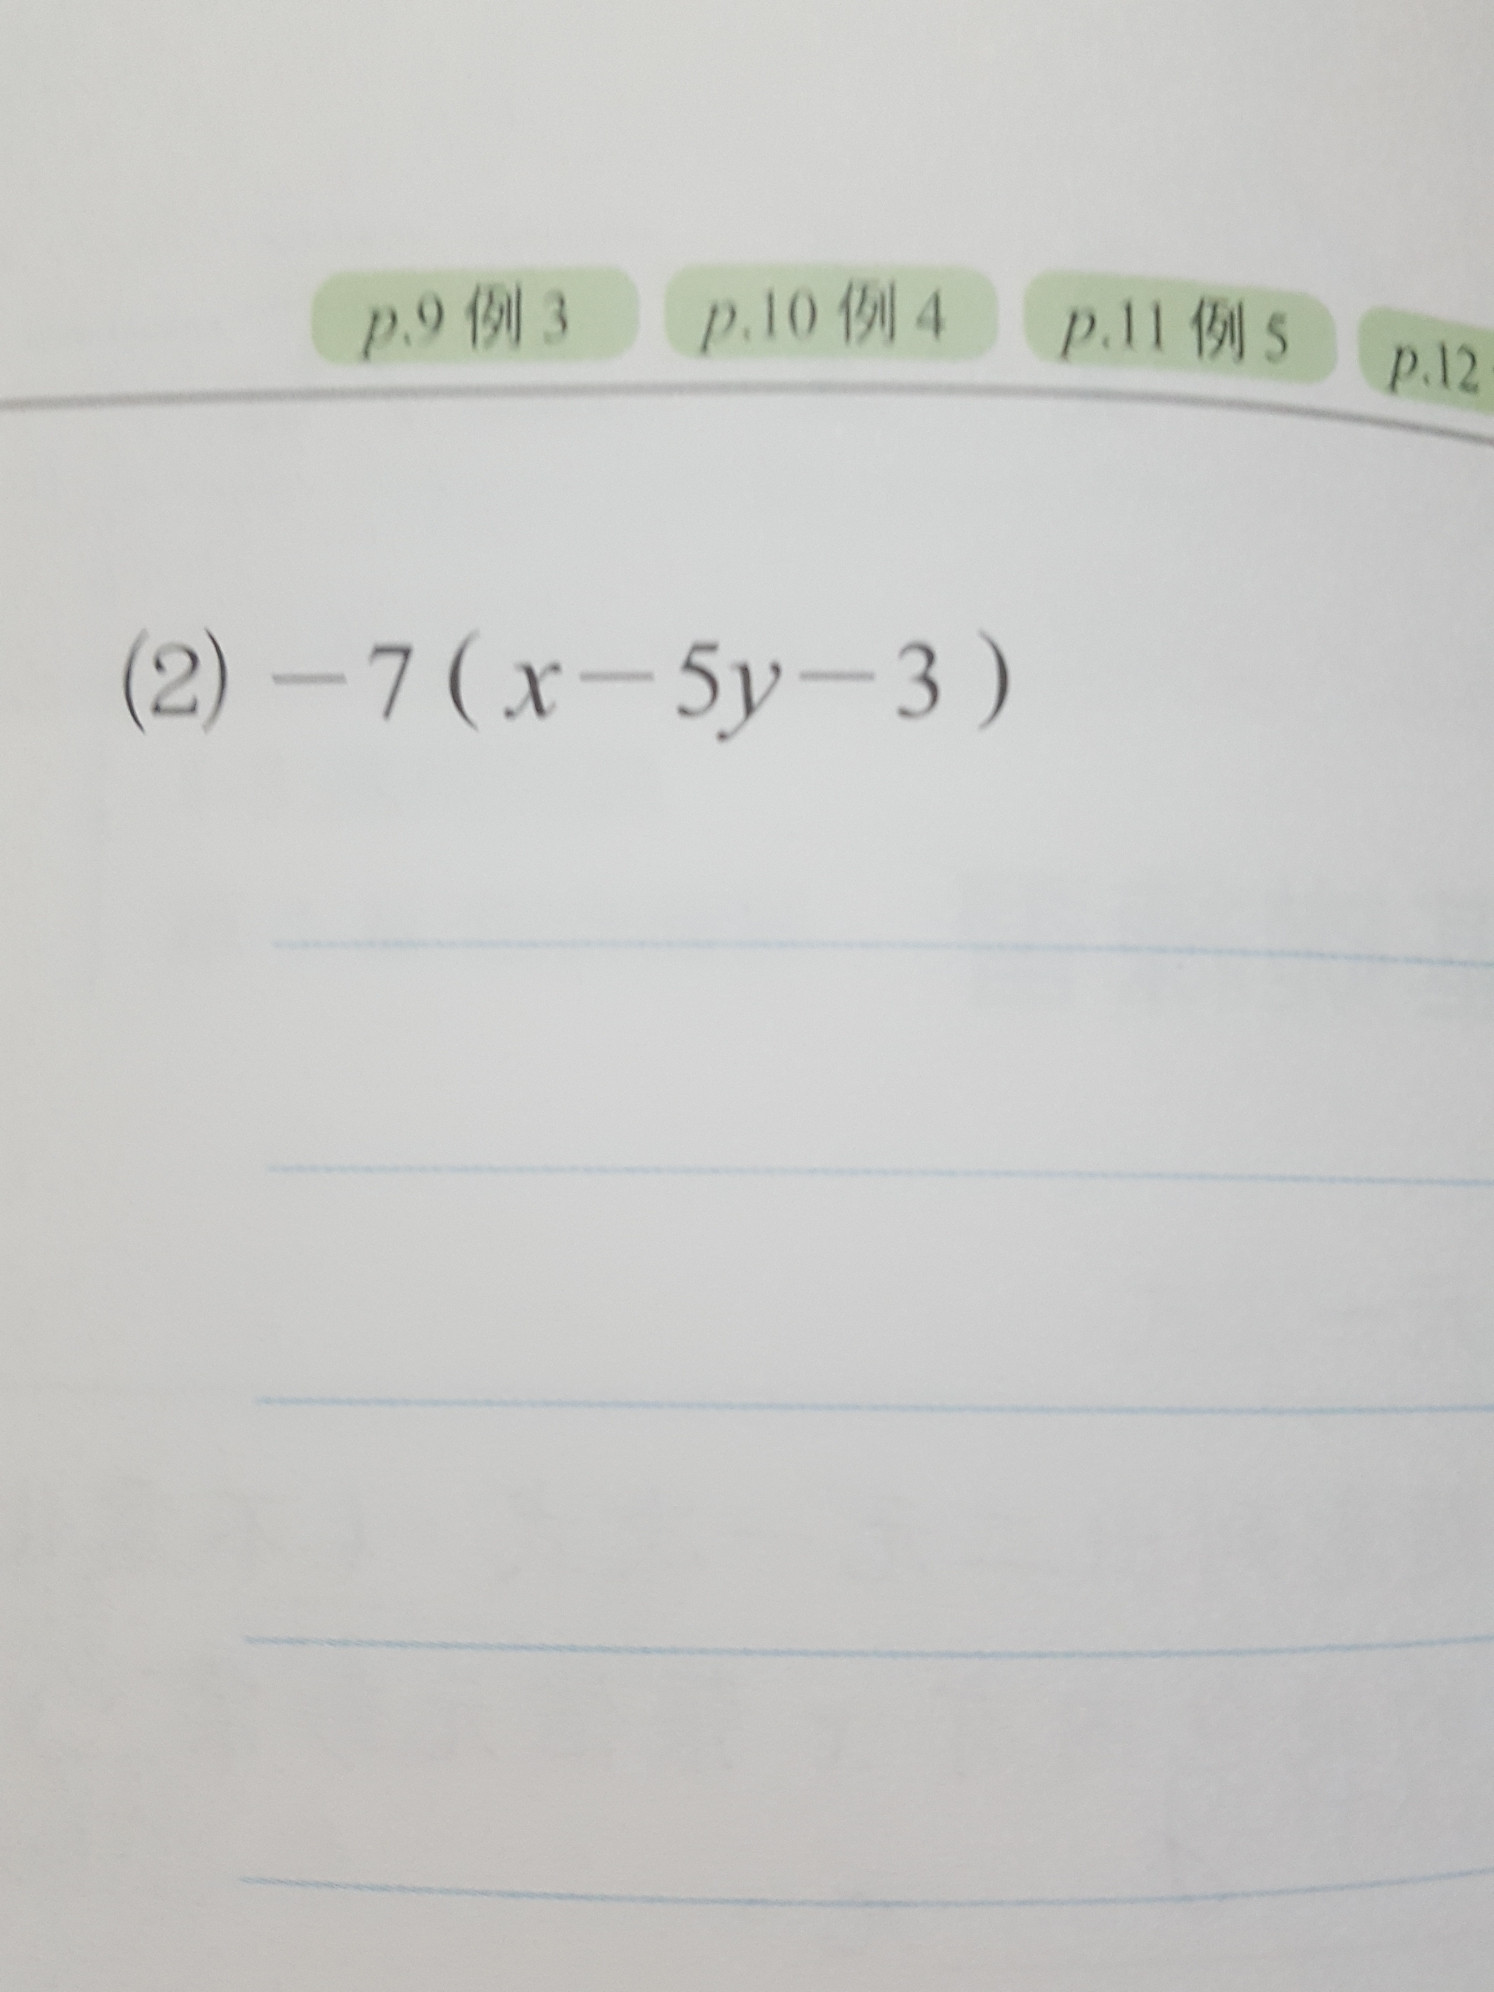 p.9 例 3 p.10 例 4 p.11 例 5 p.12
(2) −7( x−5y−3 )